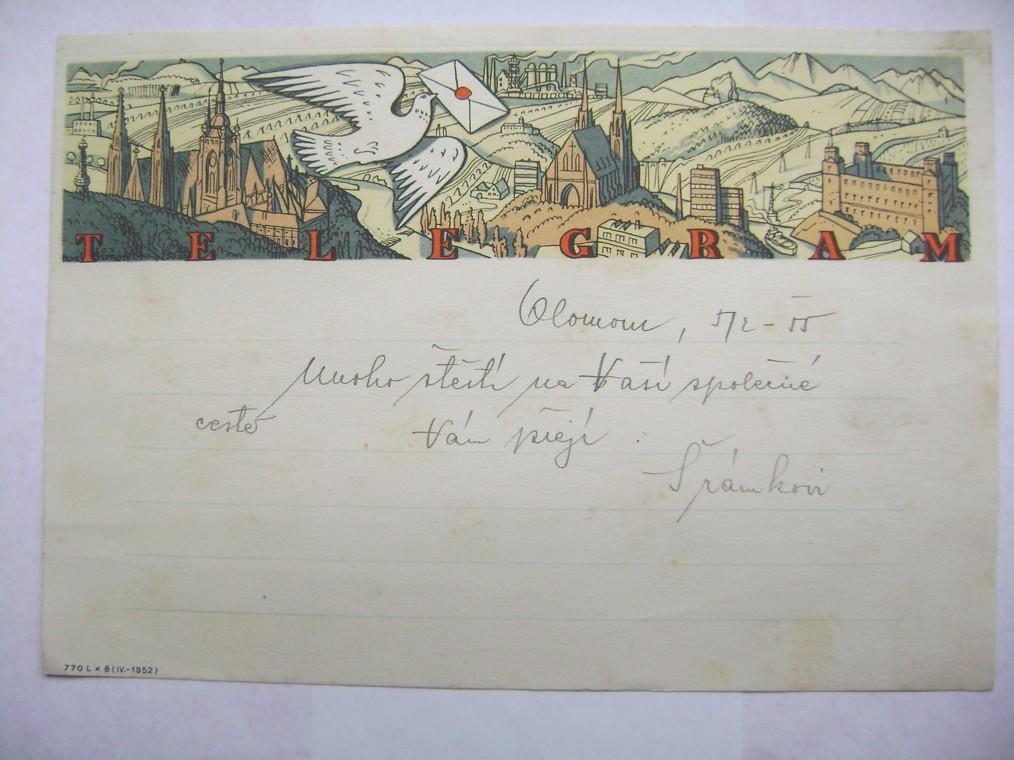 TELEGRAM
Olomouc, 5/2 - 55
Mnoho štěstí na Vaší společné
cestě Vám přejí.
Šrámkovi
770 L × 8 (IV.-1952)